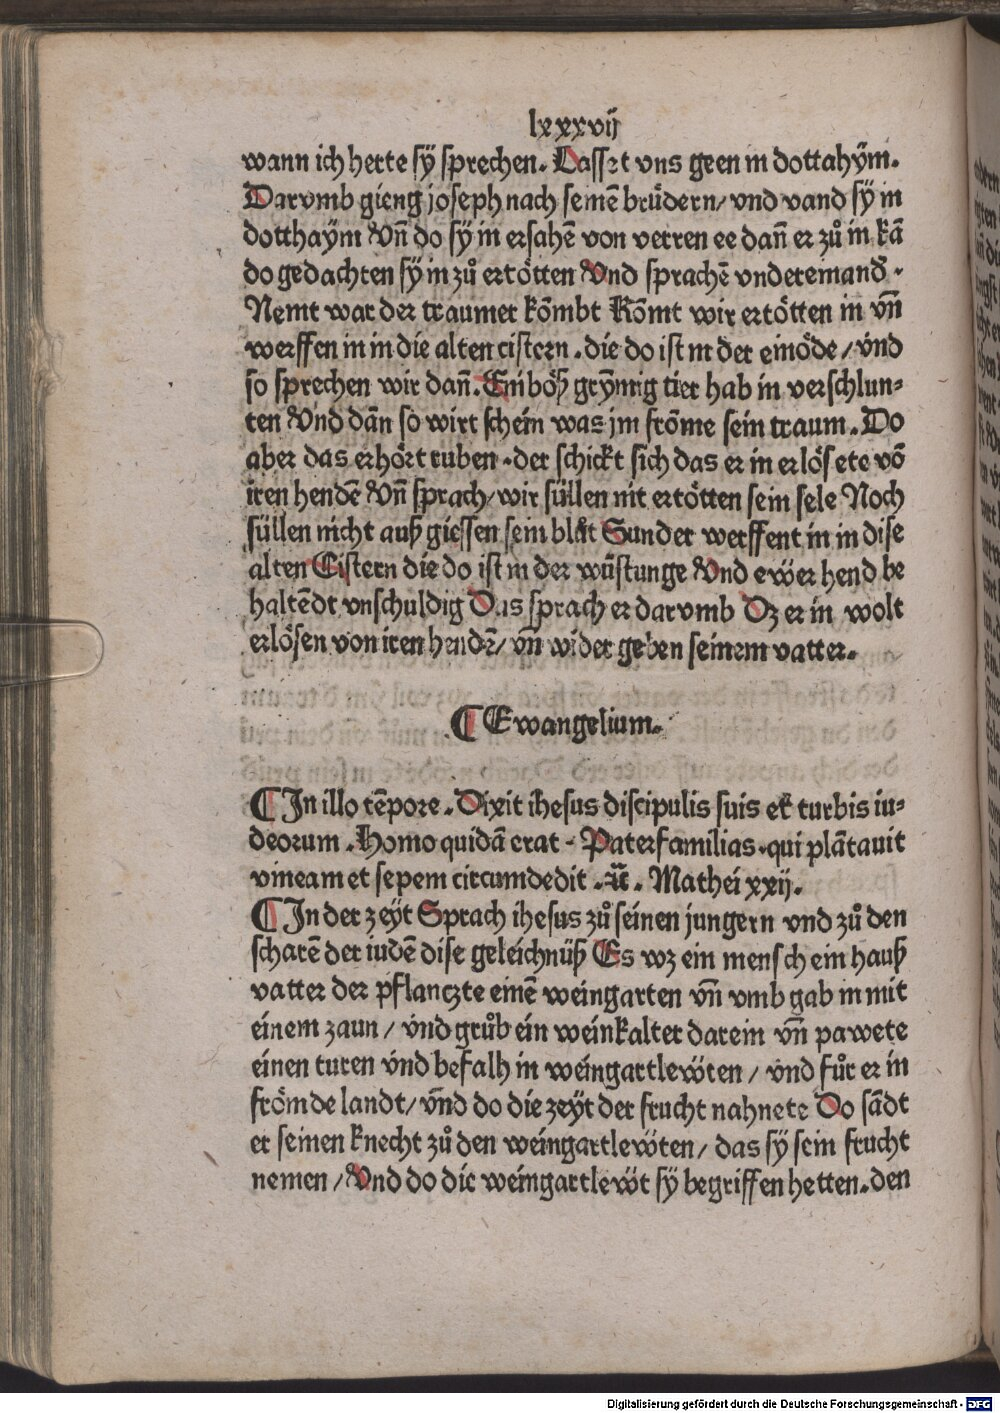 lxxxvij
wann ich herte sÿ sprechen. Lasszt vns geen in dottahÿm.
Darvmb gieng joseph nach seinē brüdern/ vnd vand sÿ in
dotthaÿm Vn̄ do sÿ in ersahē von verren ee dan̄ er zů in kā
do gedachten sÿ in zů ertötten Vnd sprachē vndereinand̄ .
Nemt war der traumer kōmbt Kōmt wir ertötten in vn̄
werffen in in die alten cistern . die do ist in der einöde / vnd
so sprechen wir dan̄. Ein böß grÿmig tier hab in verschlun⸗
ten Vnd dān so wirt schein was jm frōme sein traum. Do
aber das erhört ruben . der schickt sich das er in erlösete vō
iren hendē Vn̄ sprach/ wir süllen nit ertötten sein sele Noch
süllen nicht auß giessen sein blůt Sunder werffent in in dise
alten Cistern die do ist in der wüstunge Vnd ewer hend be
haltēdt vnschuldig Das sprach er darvmb Dz er in wolt
erlösen von iren hendē/ vn̄ wider geben seinem vatter.
¶ Ewangelium.
¶ In illo tēpore . Dixit ihesus discipulis suis et turbis iu⸗
deorum . Homo quidā erat - Paterfamilias . qui plātauit
vineam et sepem circumdedit . ꝛc̄. Mathei xxij.
¶ In der zeÿt Sprach ihesus zů seinen jungern vnd zů den
scharē der iudē dise geleichnüß Es wz ein mensch ein hauß
vatter der pflanczte einē weingarten vn̄ vmb gab in mit
einem zaun / vnd grůb ein weinkalter darein vn̄ pawete
einen turen vnd befalh in weingartlewten / vnd fůr er in
frömde landt/ vnd do die zeÿt der frucht nahnete Do sādt
er seinen knecht zů den weingartlewten/ das sÿ sein frucht
nemen / Vnd do die weingartlewt sÿ begriffen hetten. den
Digitalisierung gefördert durch die Deutsche Forschungsgemeinschaft - DFG